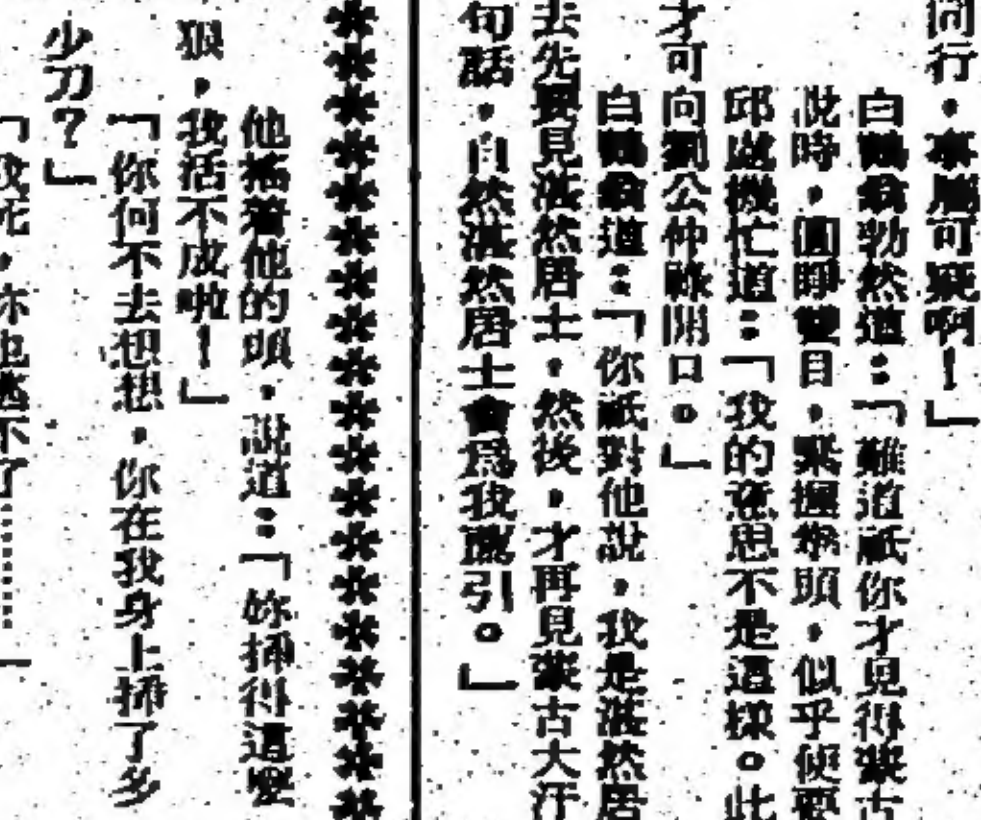 同行,事屬可疑啊!」
白鶴翁勃然道:「難道祇你才見得蒙古
說時,圓睜雙目,緊握拳頭,似乎便要
邱處機忙道:「我的意思不是這樣。此
才可向劉公仲祿開口。」
白鶴翁道:「你祇對他說,我是湛然居
去先要見湛然居士,然後,才再見蒙古大汗
句話,自然湛然居士會爲我薦引。」
他搖着他的頭,說道:「妳揷得這麼
狠,我活不成啦!」
「你何不去想想,你在我身上揷了多
少刀?」
「我死,你也逃不了……